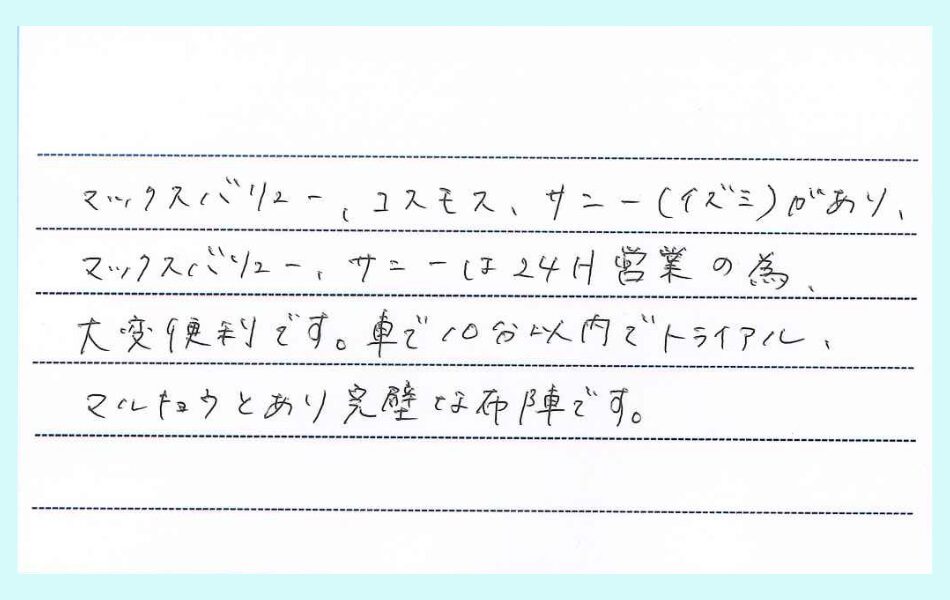 マックスバリュー、コスモス、サニー(イズミ)があり、
マックスバリュー、サニーは24H営業の為、
大変便利です。車で10分以内でトライアル、
マルキョウとあり完璧な布陣です。